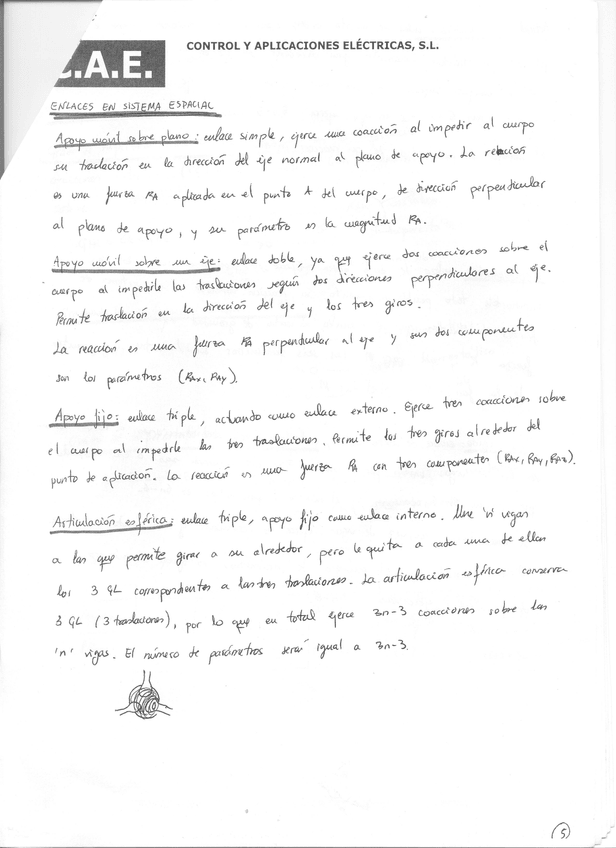 C.A.E.
CONTROL Y APLICACIONES ELÉCTRICAS, S.L.
ENLACES EN SISTEMA ESPACIAL
Apoyo móvil sobre plano: enlace simple, ejerce una coacción al impedir al cuerpo
su traslación en la dirección del eje normal al plano de apoyo. La reacción
es una fuerza RA aplicada en el punto A del cuerpo, de dirección perpendicular
al plano de apoyo, y su parámetro es la magnitud RA.
Apoyo móvil sobre un eje: enlace doble, ya que ejerce dos coacciones sobre el
cuerpo al impedirle las traslaciones según dos direcciones perpendiculares al eje.
Permite traslación en la dirección del eje y los tres giros.
La reacción es una fuerza RA perpendicular al eje y sus dos componentes
son los parámetros (RAX, RAY).
Apoyo fijo: enlace triple, actuando como enlace externo. Ejerce tres coacciones sobre
el cuerpo al impedirle las tres traslaciones. Permite los tres giros alrededor del
punto de aplicación. La reacción es una fuerza RA con tres componentes (RAX, RAY, RAZ).
Articulación esférica: enlace triple, apoyo fijo como enlace interno. Une 'n' vigas
a las que permite girar a su alrededor, pero le quita a cada una de ellas
los 3 GL correspondientes a las tres traslaciones. La articulación esférica conserva
3 GL (3 traslaciones), por lo que en total ejerce 3n-3 coacciones sobre las
'n' vigas. El número de parámetros será igual a 3n-3.
5